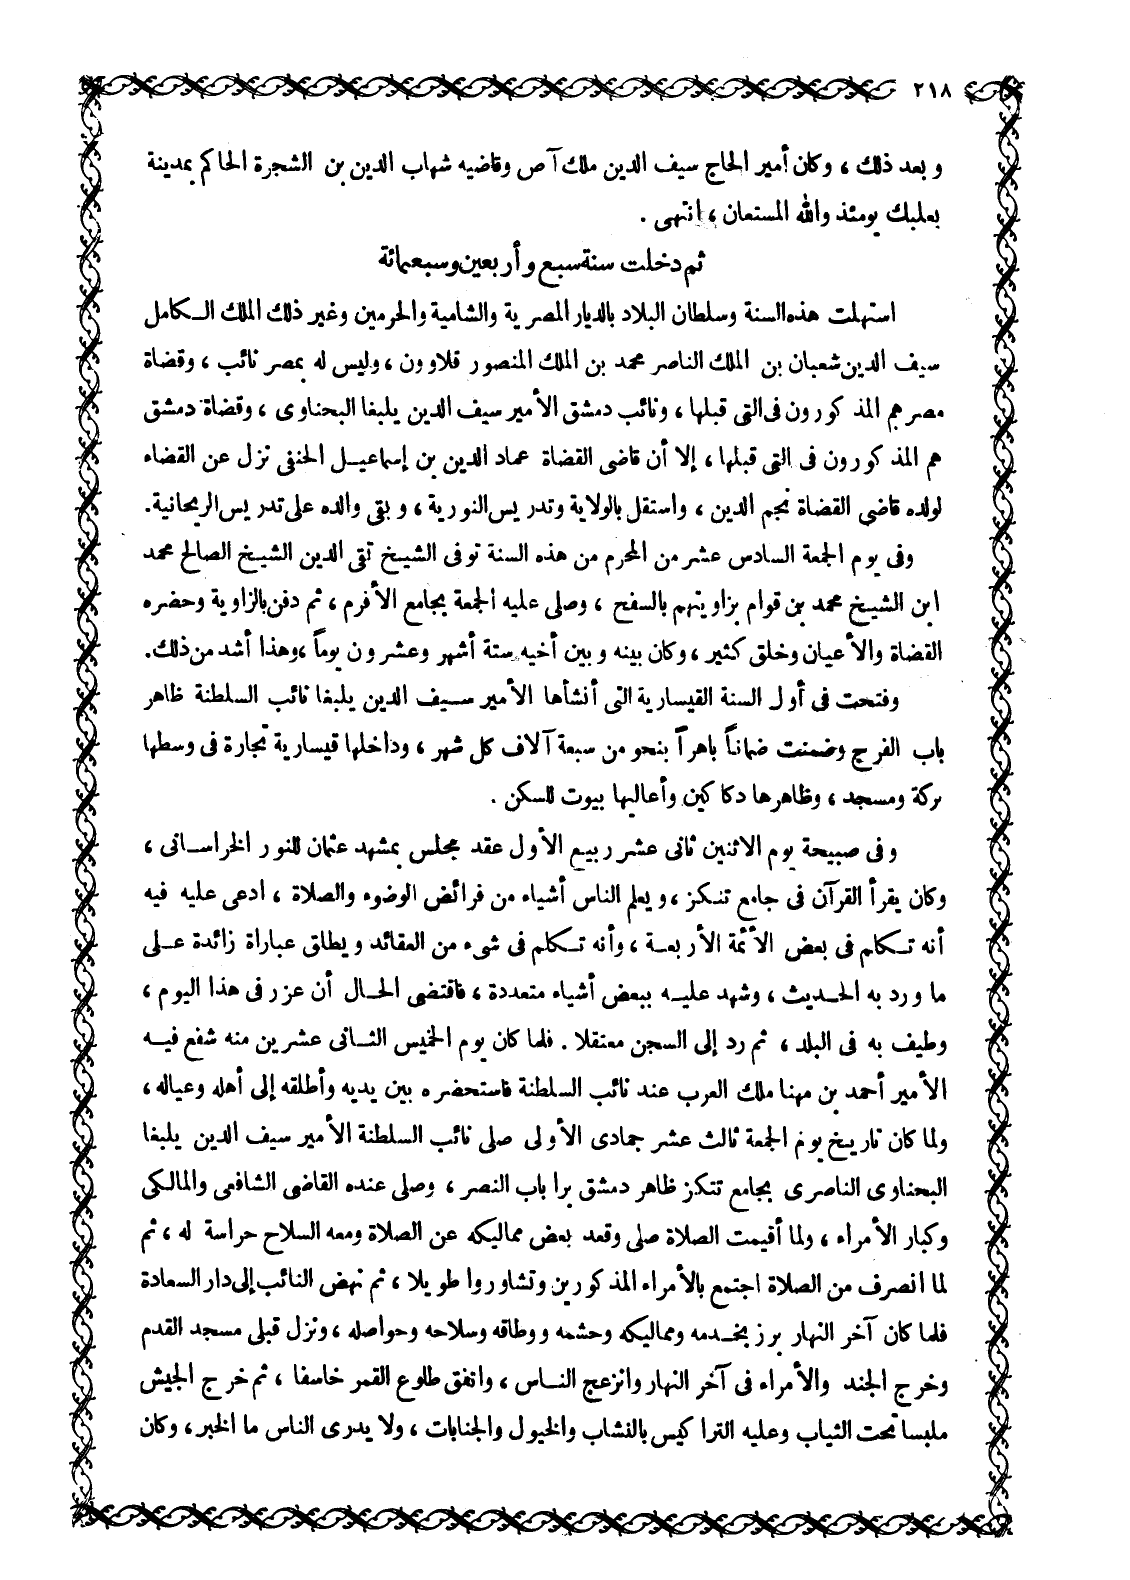 ٢١٨
و بعد ذلك ، وكان أمير الحاج سيف الدين ملك آص وقاضيه شهاب الدين بن الشجرة الحاكم بمدينة
بعلبك يومئذ والله المستعان ، انتهى .
ثم دخلت سنة سبع وأربعين وسبعمائة
استهلت هذه السنة وسلطان البلاد بالديار المصرية والشامية والحرمين وغير ذلك الملك الكامل
سيف الدين شعبان بن الملك الناصر محمد بن الملك المنصور قلاوون ، وليس له بمصر نائب ، وقضاة
مصر هم المذكورون فى التى قبلها ، ونائب دمشق الأمير سيف الدين يلبغا البحناوى ، وقضاة دمشق
هم المذكورون فى التى قبلها ، إلا أن قاضى القضاة عماد الدين بن إسماعيل الحنفى نزل عن القضاء
لولده قاضى القضاة نجم الدين ، واستقل بالولاية وتدريس النورية ، وبقى والده على تدريس الريحانية .
وفى يوم الجمعة السادس عشر من المحرم من هذه السنة توفى الشيخ تقى الدين الشيخ الصالح محمد
ابن الشيخ محمد بن قوام بزاويتهم بالسفح ، وصلى عليه الجمعة بجامع الأفرم ، ثم دفن بالزاوية وحضره
القضاة والأعيان وخلق كثير ، وكان بينه وبين أخيه ستة أشهر وعشرون يوماً ، وهذا أشد من ذلك .
وفتحت فى أول السنة القيسارية التى أنشأها الأمير سيف الدين يلبغا نائب السلطنة ظاهر
باب الفرج وضمنت ضماناً باهراً بنحو من سبعة آلاف كل شهر ، وداخلها قيسارية تجارة فى وسطها
بركة ومسجد ، وظاهرها دكاكين وأعاليها بيوت للسكن .
وفى صبيحة يوم الاثنين ثانى عشر ربيع الأول عقد مجلس بمشهد عثمان للنور الخراسانى ،
وكان يقرأ القرآن فى جامع تنكز ، ويعلم الناس أشياء من فرائض الوضوء والصلاة ، ادعى عليه فيه
أنه تكلم فى بعض الأئمة الأربعة ، وأنه تكلم فى شىء من العقائد ويطلق عبارات زائدة على
ما ورد به الحديث ، وشهد عليه ببعض أشياء متعددة ، فاقتضى الحال أن عزر فى هذا اليوم ،
وطيف به فى البلد ، ثم رد إلى السجن معتقلا . فلما كان يوم الخميس الثانى عشرين منه شفع فيه
الأمير أحمد بن مهنا ملك العرب عند نائب السلطنة فاستحضره بين يديه وأطلقه إلى أهله وعياله ،
ولما كان تاريخ يوم الجمعة ثالث عشر جمادى الأولى صلى نائب السلطنة الأمير سيف الدين يلبغا
البحناوى الناصرى بجامع تنكز ظاهر دمشق برا باب النصر ، وصلى عنده القاضى الشافعى والمالكى
وكبار الأمراء ، ولما أقيمت الصلاة صلى وقعد بعض مماليكه عن الصلاة ومعه السلاح حراسة له ، ثم
لما انصرف من الصلاة اجتمع بالأمراء المذكورين وتشاوروا طويلا ، ثم نهض النائب إلى دار السعادة
فلما كان آخر النهار برز بخدمه ومماليكه وحشمه ووطاقه وسلاحه وحواصله ، ونزل قبلى مسجد القدم
وخرج الجند والأمراء فى آخر النهار وانزعج الناس ، واتفق طلوع القمر خاسفا ، ثم خرج الجيش
ملبسا تحت الثياب وعليه التراكيس بالنشاب والخيول والجنابات ، ولا يدرى الناس ما الخبر ، وكان